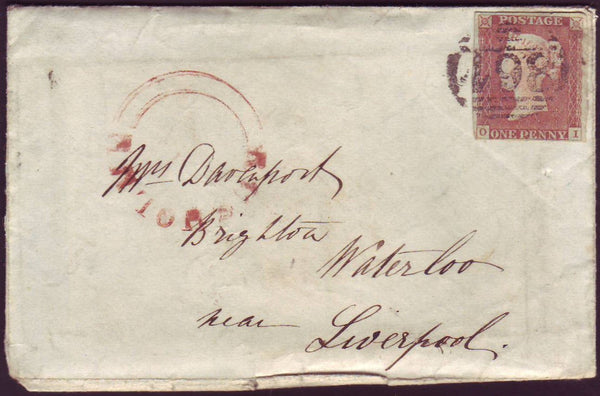 POSTAGE
498
O I
ONE PENNY
Mrs Davenport
Brighton
Waterloo
near Liverpool.